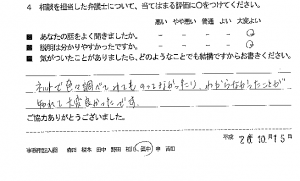 4 相談を担当した弁護士について、当てはまる評価に○をつけてください。
悪い やや悪い 普通 よい 大変よい
■ あなたの話をよく聞きましたか。
■ 説明は分かりやすかったですか。
■ 気がついたことがありましたら、どのようなことでも結構ですからお書きください。
ネットで色々調べてみてものってなかったり、わからなかったことが
知れて大変良かったです。
ご協力ありがとうございました。
平成 26年10月15日
事務所記入欄